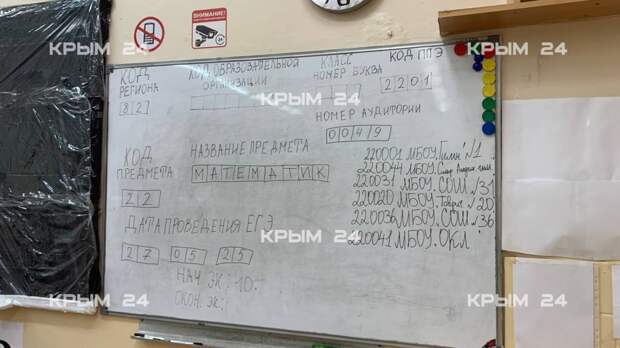 ВНИМАНИЕ!
КРЫМ 24
КРЫМ 24
КРЫМ 24
КОД РЕГИОНА
82
КОД ОБРАЗОВАТЕЛЬНОЙ ОРГАНИЗАЦИИ
КРЫМ 24
КЛАСС
НОМЕР БУКВА
КОД ППЭ
2201
НОМЕР АУДИТОРИИ
0049
КОД ПРЕДМЕТА
22
НАЗВАНИЕ ПРЕДМЕТА
МАТЕМАТИК
220001 МБОУ. Гимн. №1
220044 МБОУ.
220031 МБОУ. СОШ №31
220020 МБОУ. №20
220036 МБОУ. СОШ №36
220041 МБОУ. ОКЛ
ДАТА ПРОВЕДЕНИЯ ЕГЭ
КРЫМ 24
27 05 25
НАЧ ЭК: 10.
ОКОН. ЭК:
КРЫМ 24
КРЫМ 24
КРЫМ 24